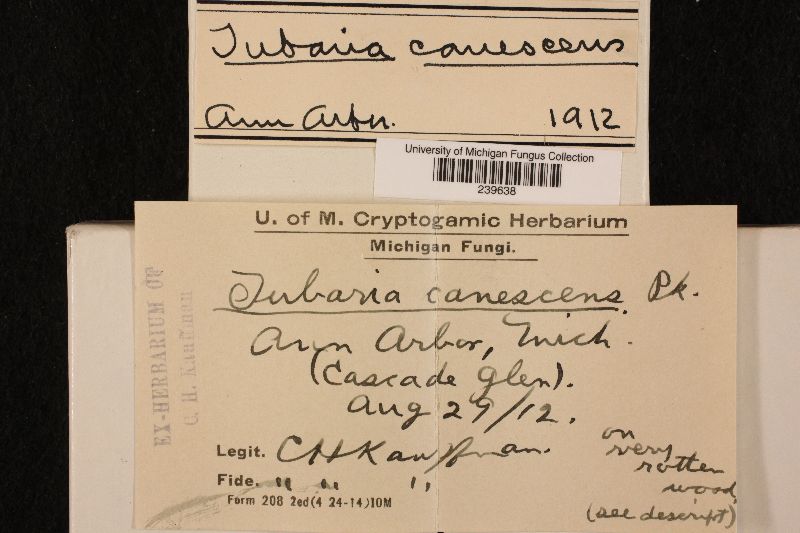 Tubaria canescens
Ann Arbor. 1912
University of Michigan Fungus Collection
239638
U. of M. Cryptogamic Herbarium
Michigan Fungi.
Tubaria canescens Pk.
Ann Arbor, Mich.
(Cascade Glen).
Aug 29/12.
Legit. CHKauffman.
Fide. " " "
Form 208 2ed(4 24-14)10M
on
very
rotten
wood
(see descript)
EX-HERBARIUM OF
C. H. Kauffman